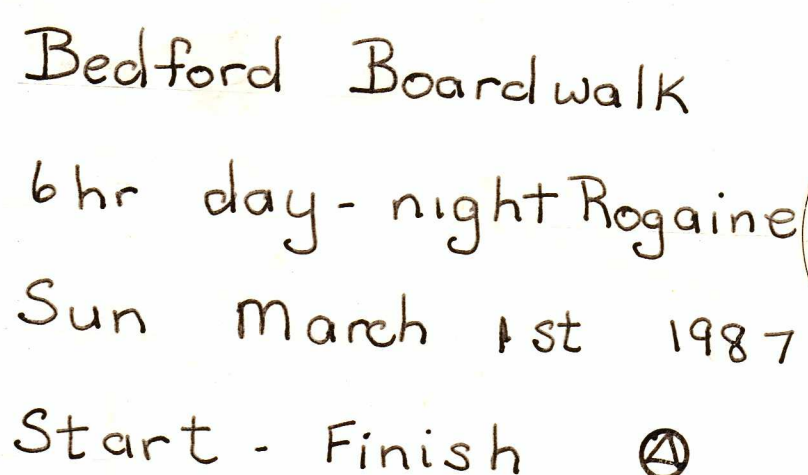 Bedford Boardwalk
6hr day - night Rogaine
Sun March 1st 1987
Start - Finish